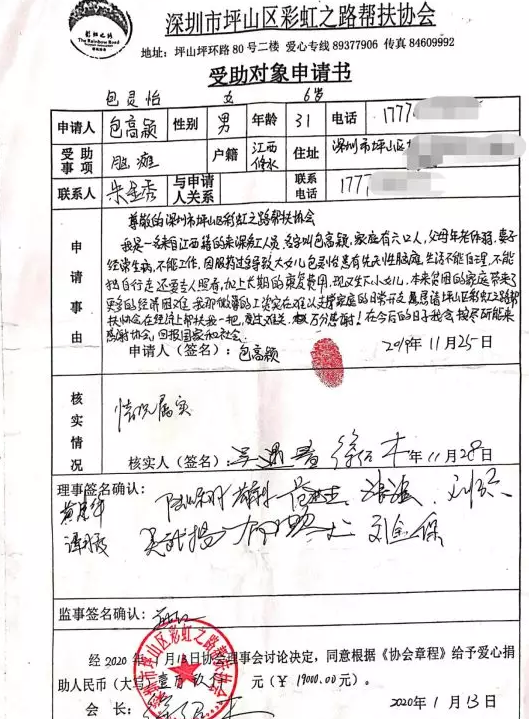 彩虹之路
The Rainbow Road
深圳市坪山区彩虹之路帮扶协会
地址：坪山坪环路80号二楼 爱心专线 89377906 传真 84609992
受助对象申请书
包灵怡 女 6岁
申请人 包高颖 性别 男 年龄 31 电话 1777
受助事项 脑瘫 户籍 江西修水 住址 深圳市坪山区
联系人 与申请人关系 联系电话 1777
申请事由
尊敬的深圳市坪山区彩虹之路帮扶协会
我是一名来自江西籍的来深务工人员，名字叫包高颖，家庭有六口人，父母年老体弱，妻子
经常生病，不能工作，因服药过导致大女儿包灵怡患有先天性脑瘫，生活不能自理，不能
独自行走还要专人照看，加上长期的康复费用，现又生下小女儿，本来贫困的家庭带来了
更多的经济困难，我那微薄的工资实在难以支撑家庭的日常开支，恳请坪山区彩虹之路帮
扶协会在经济上帮扶我一把，度过难关，万分感谢！在今后的日子我会按尽所能来
感谢协会，回报国家和社会
申请人（签名）：包高颖 2019年11月25日
核实情况
情况属实
核实人（签名）： 年11月28日
理事签名确认：
刘金保
监事签名确认：
经2020年1月13日协会理事会讨论决定，同意根据《协会章程》给予爱心捐
助人民币（大写） 元（¥ 19000.00 元）
会 长： 2020年1月13日
深圳市坪山区彩虹之路帮扶协会